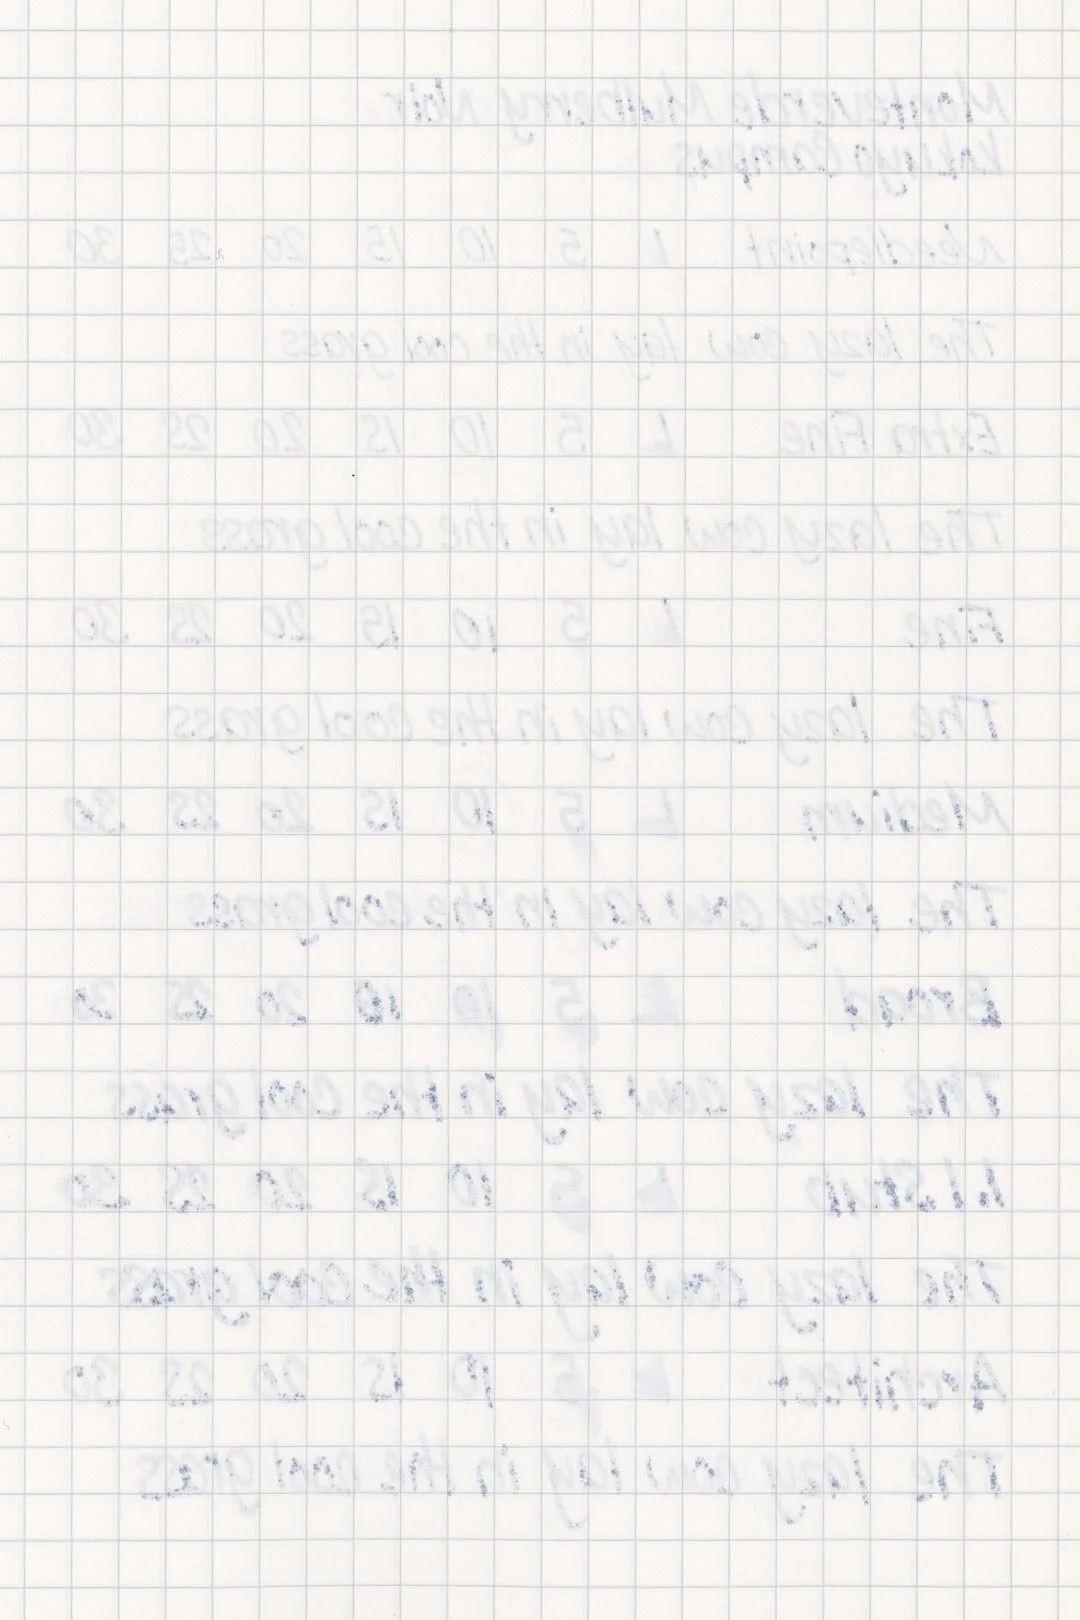 Monteverde Mulberry Noir
Kokuyo Campus
Needlepoint L 5 10 15 20 25 30
The lazy cow lay in the cool grass
Extra Fine L 5 10 15 20 25 30
The lazy cow lay in the cool grass
Fine L 5 10 15 20 25 30
The lazy cow lay in the cool grass
Medium L 5 10 15 20 25 30
The lazy cow lay in the cool grass
Broad L 5 10 20 25 30
The lazy cow lay in the cool grass
1.1 Stub L 5 10 15 20 25 30
The lazy cow lay in the cool grass
Architect L 5 10 15 20 25 30
The lazy cow lay in the cool grass